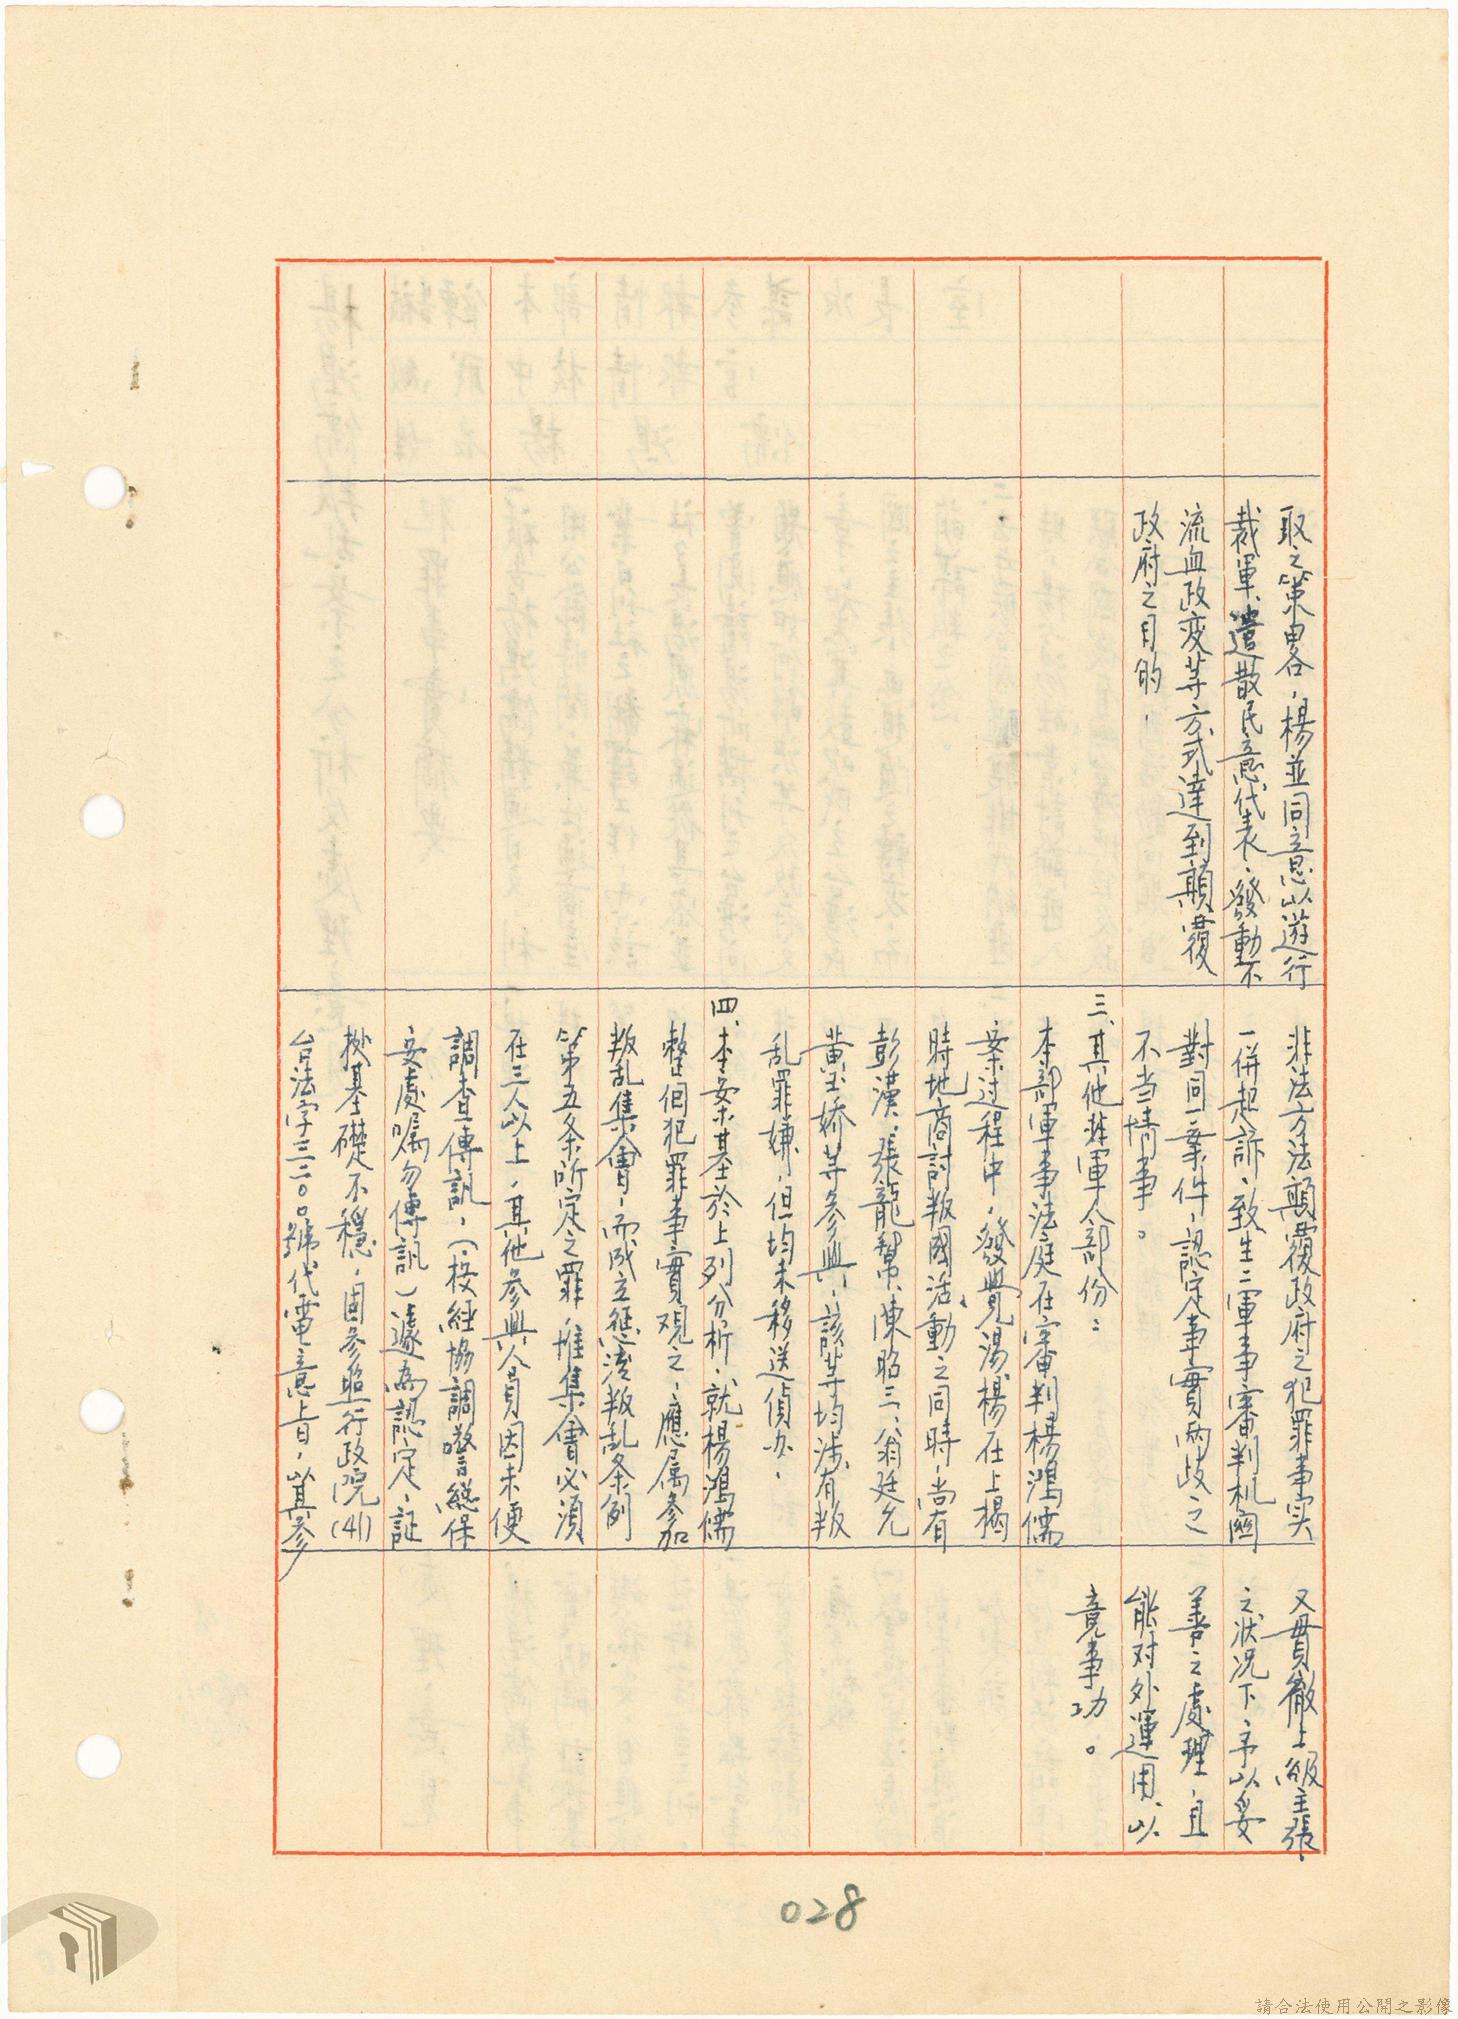 取之策畧，楊並同意以遊行
裁軍、遣散民意代表、發動不
流血政変等方式達到顛覆
政府之目的，
非法方法顛覆政府之犯罪事实
一併起訴，致生二軍事審判机關
對同一案件，認定事實兩歧之
不当情事。
三、其他非軍人部份：
本部軍事法庭在審判楊鴻儒
案过程中，發覺湯楊在上揭
時地商討叛國活動之同時，尚有
彭漢、張龍幫、陳昭三、翁廷允
黄玉嬌等參與，該等均涉有叛
乱罪嫌，但均未移送偵办，
四、本案基於上列分析，就楊鴻儒
整個犯罪事實观之，應属參加
叛乱集會，而成立惩治叛乱条例
第五条所定之罪，惟集會必須
在三人以上，其他参與人員因未便
調查傳訊，（按経協調警総保
安處嘱勿傳訊）遽為認定，証
據基礎不穩，固参照行政院(41)
台法字三二〇〇號代電意旨，以其參
又貫徹上級主張
之状况下，予以妥
善之處理，且
能对外運用，以
竟事功。
028
請合法使用公開之影像